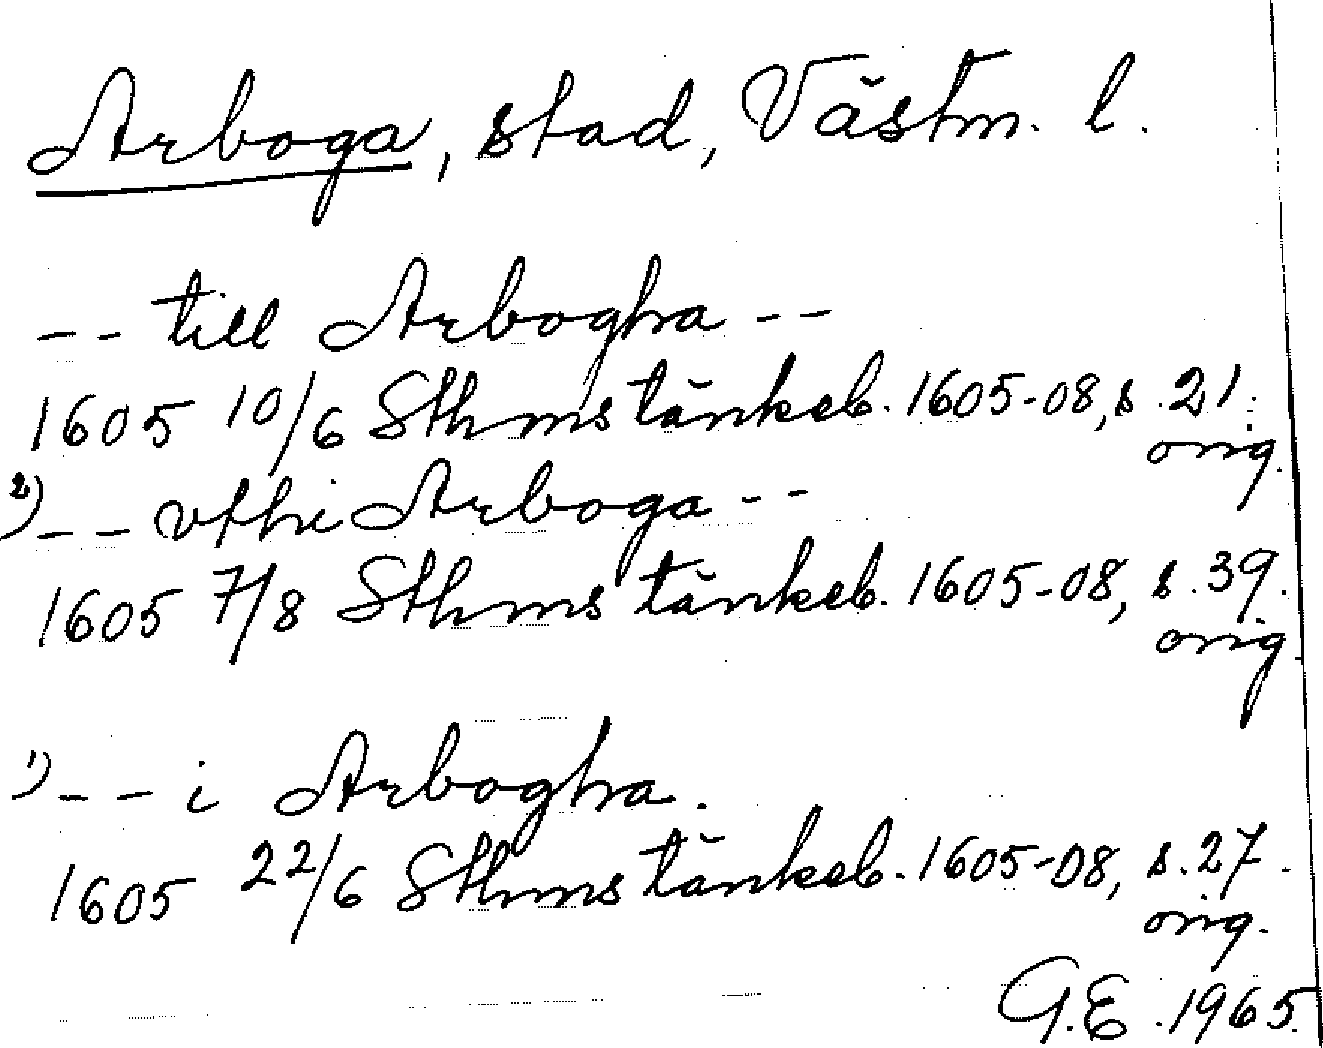 Arboga, stad, Västm. l.
-- till Arbogha --
1605 10/6 Sthms tänkeb. 1605-08, s. 21.
orig.
2) -- vthi Arboga --
1605 7/8 Sthms tänkeb. 1605-08, s. 39.
orig
1) -- i Arbogha.
1605 22/6 Sthms tänkeb. 1605-08, s. 27.
orig.
G.E. 1965.